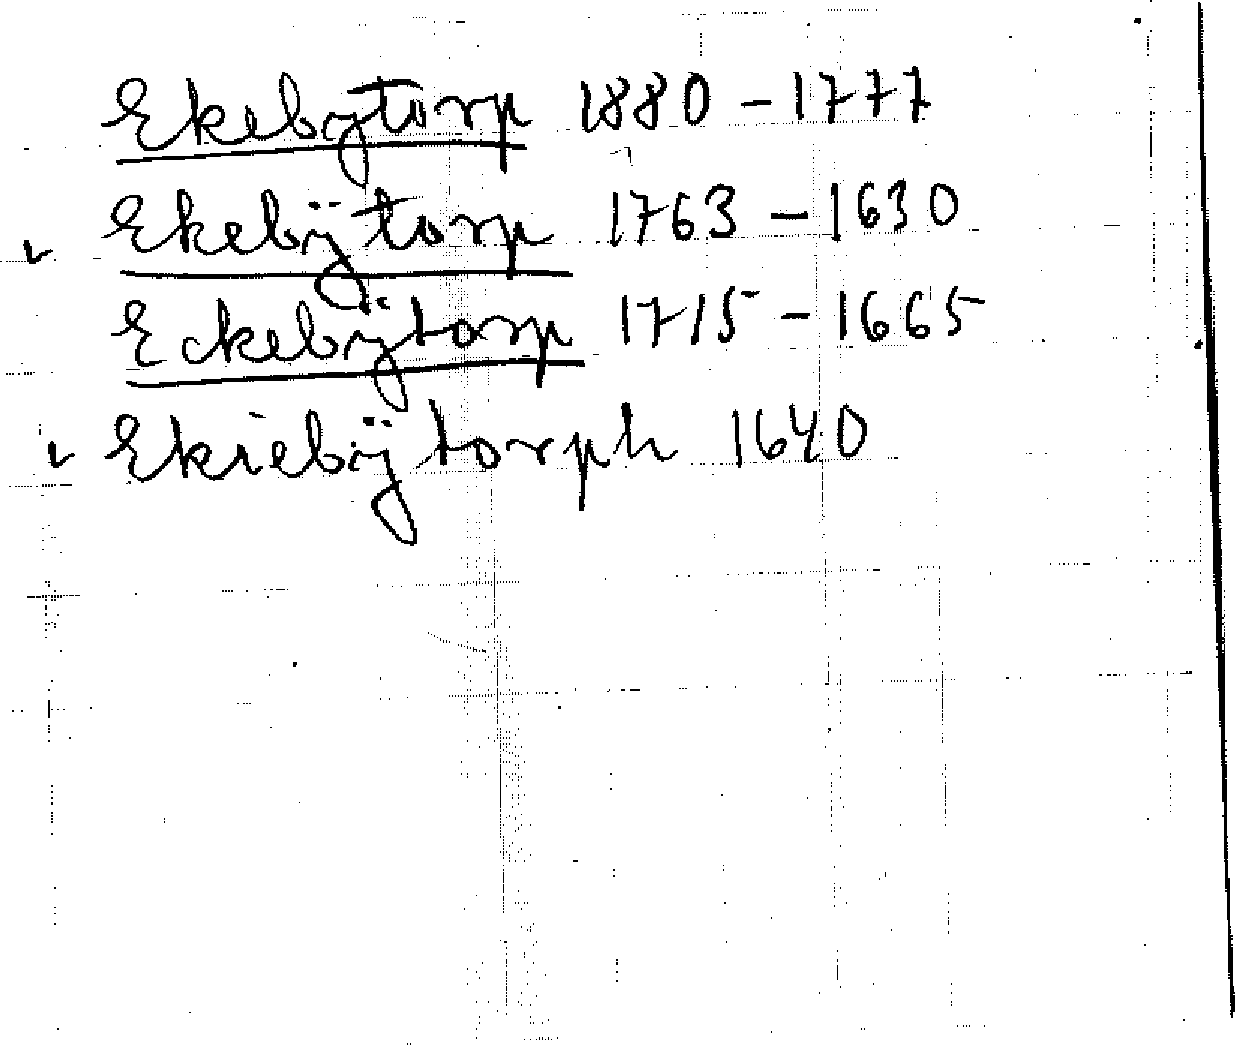 Ekebytorp 1880 - 1777
Ekebÿtorp 1763 - 1630
Eckebÿtorp 1715 - 1665
Ekiebÿtorph 1640